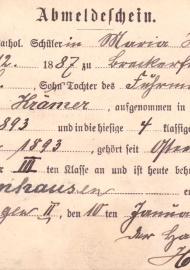 Abmeldeschein.
athol. Schülerin Maria
12. 1887 zu
Sohn Tochter des Fuhrm
Krämer, aufgenommen in
1893 und in die hiesige 4 klassig
1893, gehört seit Oster
III ten Klasse an und ist heute beh
nhausen
gen II, den 10ten Januar
der Ha